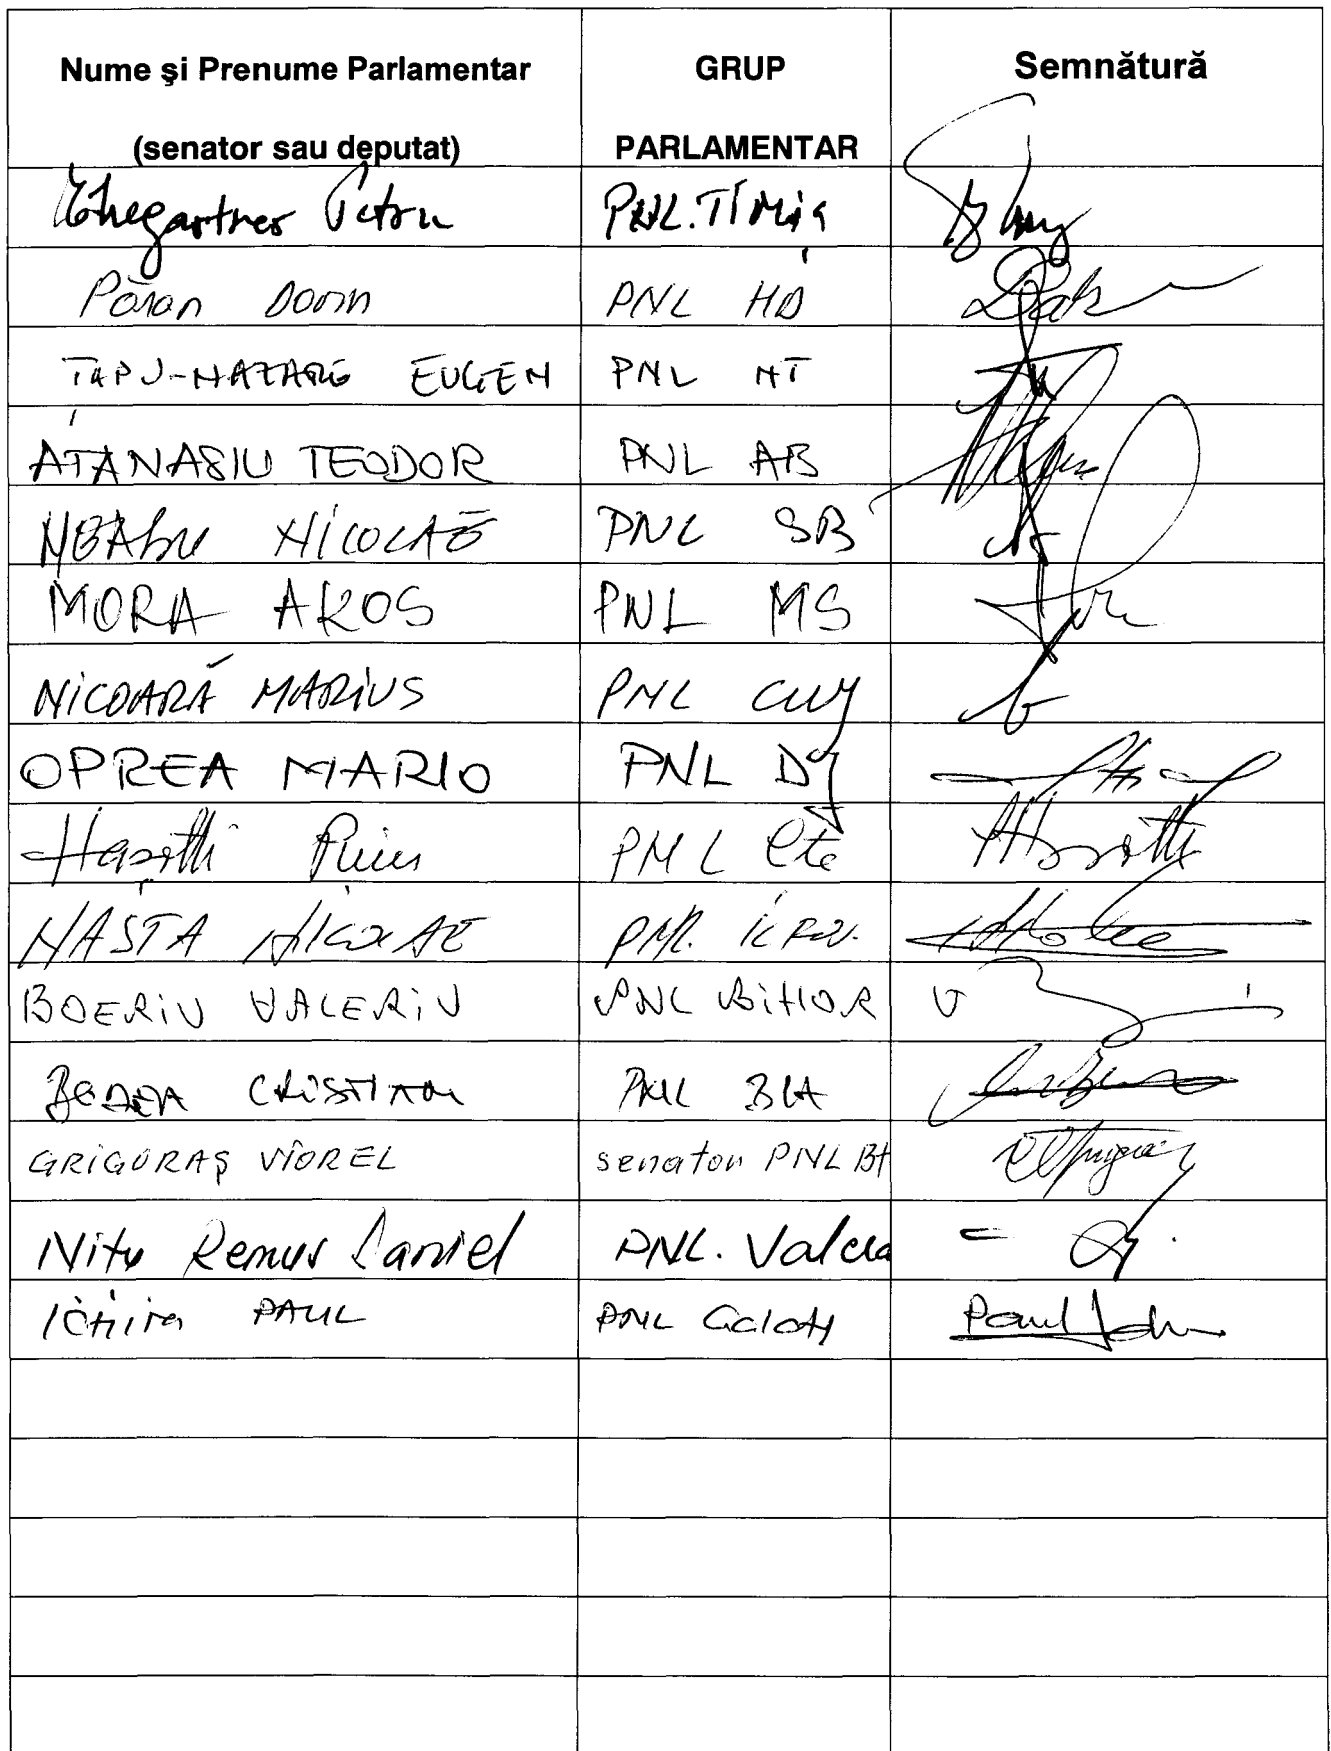 Nume şi Prenume Parlamentar GRUP Semnătură
(senator sau deputat) PARLAMENTAR
Ehegartner Petru PNL. Timiş
Păran Dorin PNL HD
ŢAPU-NAZARE EUGEN PNL NT
ATANASIU TEODOR PNL AB
NEAGU NICOLAE PNL SB
MORA AKOS PNL MS
NICOARĂ MARIUS PNL CLUJ
OPREA MARIO PNL DJ
Haşotti Puiu PNL Cta
NASTA NICOLAE PNL
BOERIU VALERIU PNL BIHOR
BODEA CRISTIAN PNL
GRIGORAŞ VIOREL senator PNL Bt
Niţu Remus Daniel PNL. Valcea
Ichim PAUL PNL Galaţi Paul Ichim